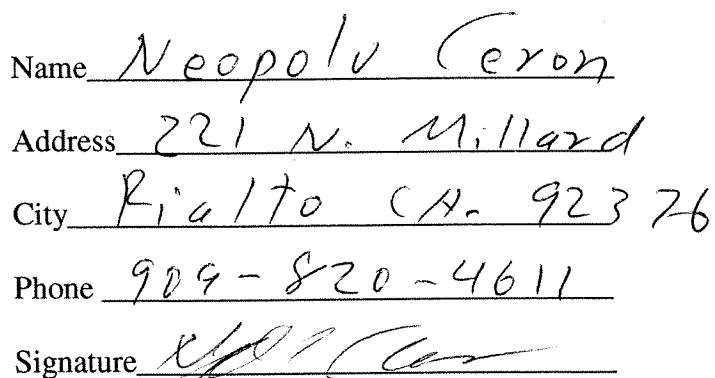 Name Neopolo Ceron
Address 221 N. Millard
City Rialto CA. 92376
Phone 909-820-4611
Signature